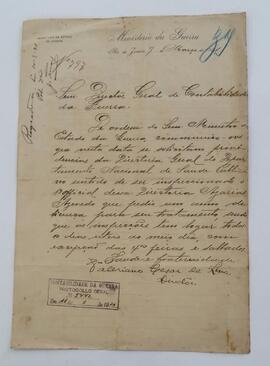 Ministerio da Guerra
Rio de Janeiro, 7 de Março
Nº 393
Snr. Director Geral de Contabilidade
da Guerra
De ordem do Snr. Ministro
Estado da Guerra, communico-vos
que nesta data se solicitam provi-
dencias da Directoria Geral do Depar-
tamento Nacional de Saude Publica
no sentido de ser inspeccionado o
official dessa Directoria
Azevedo que pediu um anno de
licença para seu tratamento, sendo
que as inspecções tem logar todos
os dias uteis ao meio dia, com
excepção das 4ªs feiras e sabbados.
Saude e fraternidade
Valeriano Cesar de Lima
Director
CONTABILIDADE DA GUERRA
PROTOCOLLO GERAL